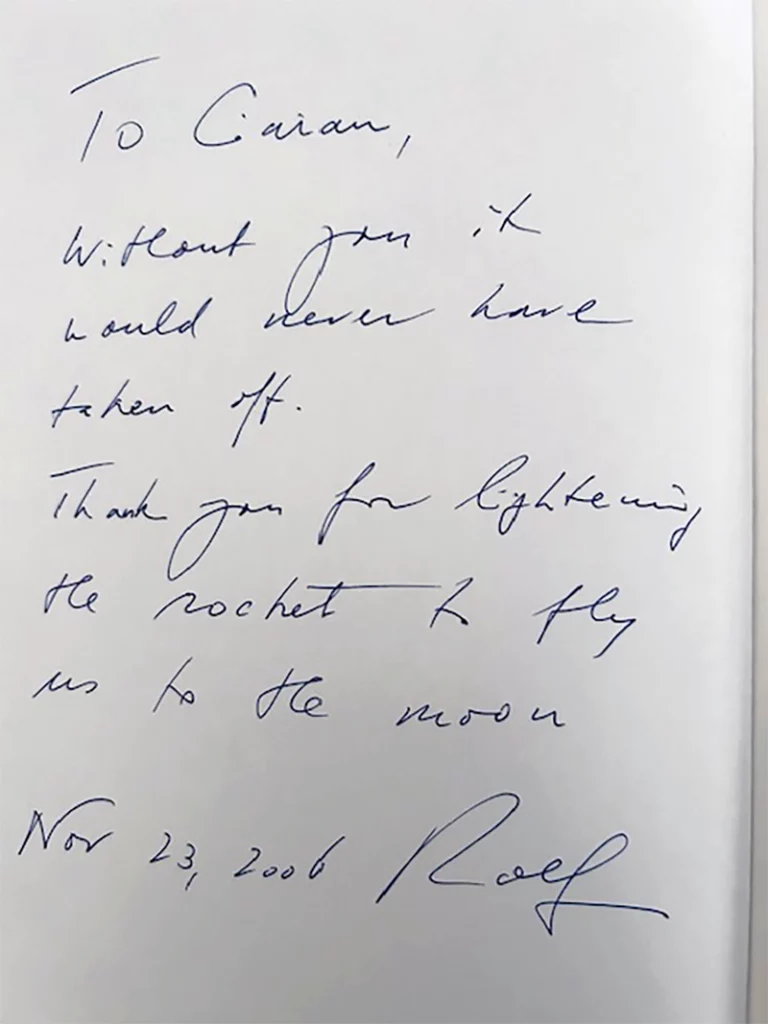 To Ciaran,
Without you it
would never have
taken off.
Thank you for lightening
the rocket to fly
us to the moon
Nov 23, 2006 Rolf